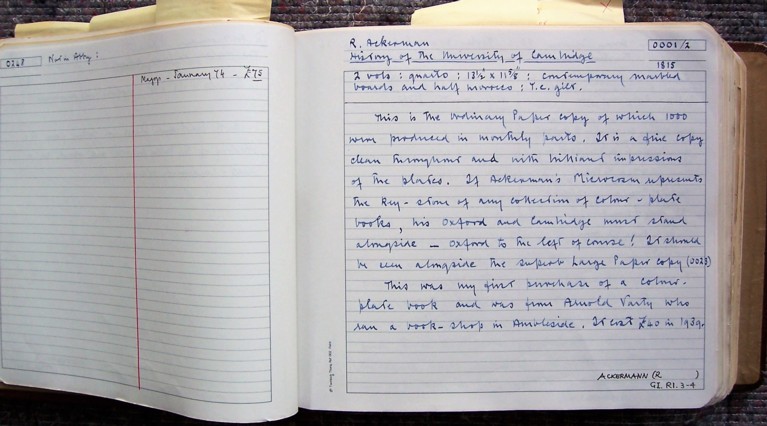 0248
Maggs - January 74 - £75
R. Ackerman
0001/2
History of the University of Cambridge
1815
2 vols : quarto : 13½ x 11⅜ : contemporary marbled
boards and half morocco : T.e. gilt.
This is the Ordinary Paper copy of which 1000
were produced in monthly parts. It is a fine copy
clean throughout and with brilliant impressions
of the plates. If Ackerman's Microcosm represents
the key-stone of any collection of colour-plate
books, his Oxford and Cambridge must stand
alongside — Oxford to the left of course! It should
be seen alongside the superb Large Paper copy (0023)
This was my first purchase of a colour-
plate book and was from Arnold Varty who
ran a book-shop in Ambleside. It cost £40 in 1939.
ACKERMANN (R )
GI. R1. 3-4